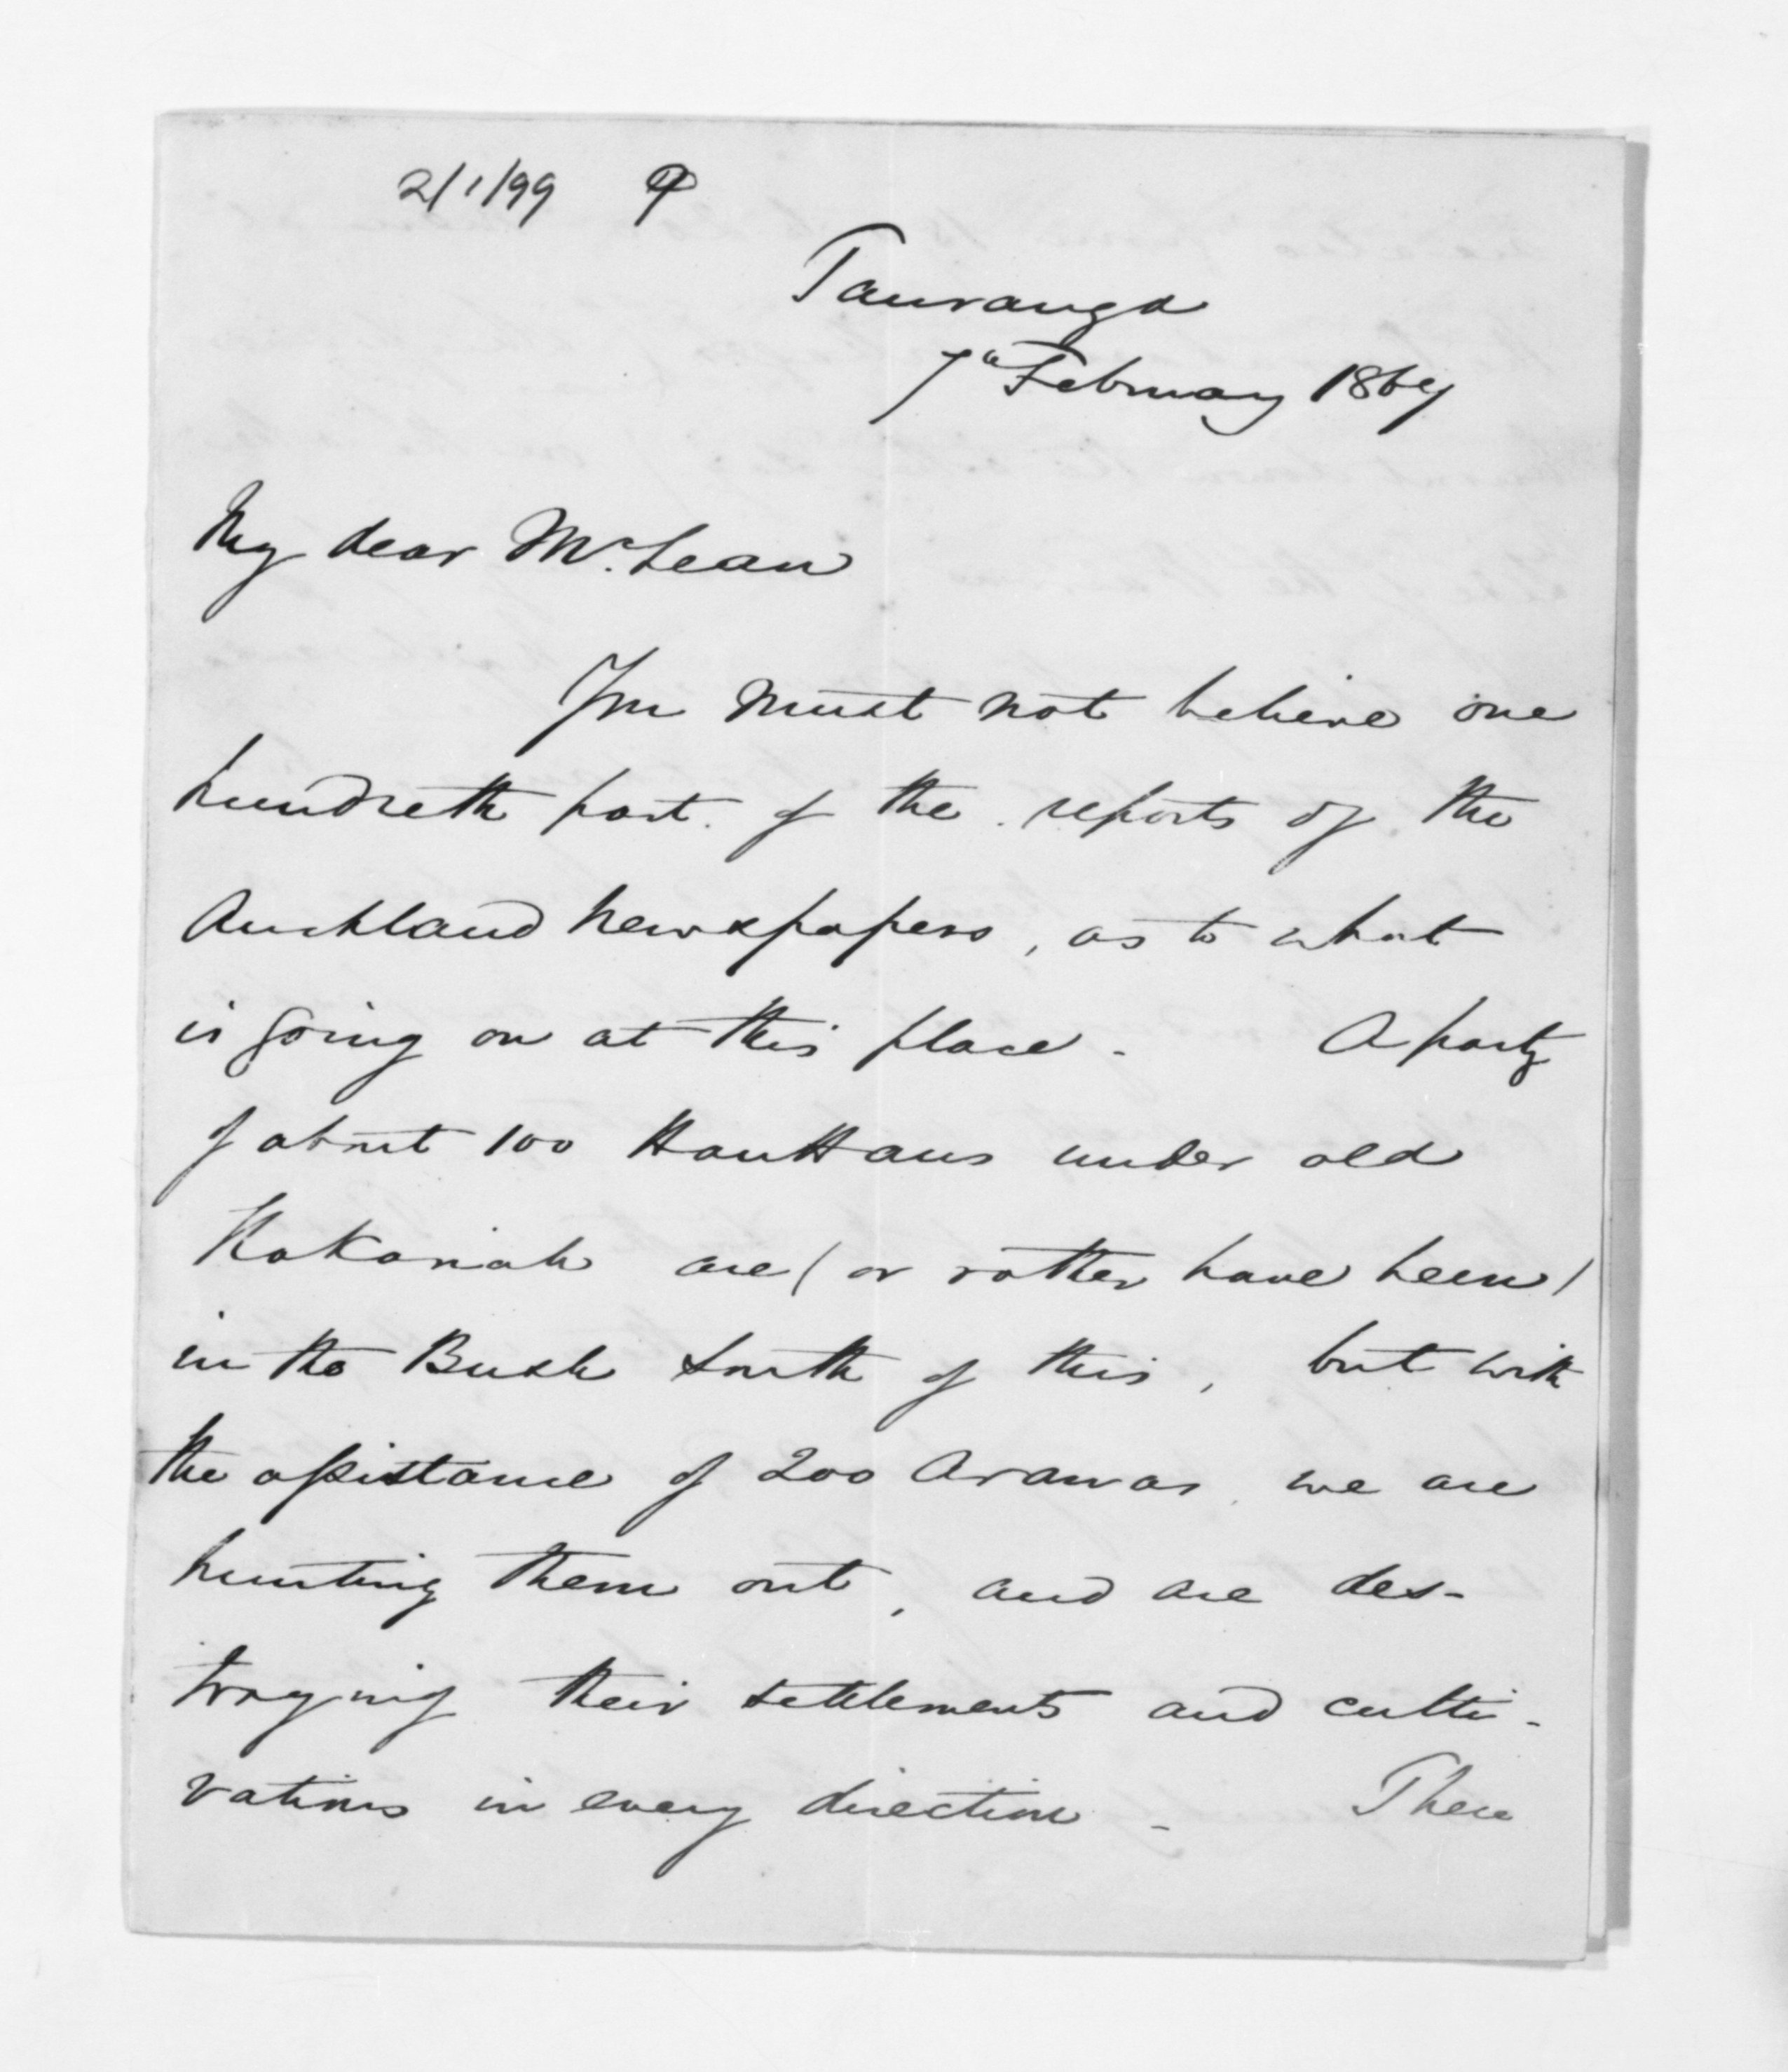 2/1/99 P
Tauranga
7th February 1867
My dear McLean
You must not believe one
hundreth part of the reports of the
Auckland Newspapers, as to what
is going on at this place - A party
of about 100 HauHaus under old
Hakariah are (or rather have been)
in the Bush South of this, but with
the assistance of 200 Arawas, we are
hunting them out, and are des-
troying their settlements and culti-
vations in every direction - There